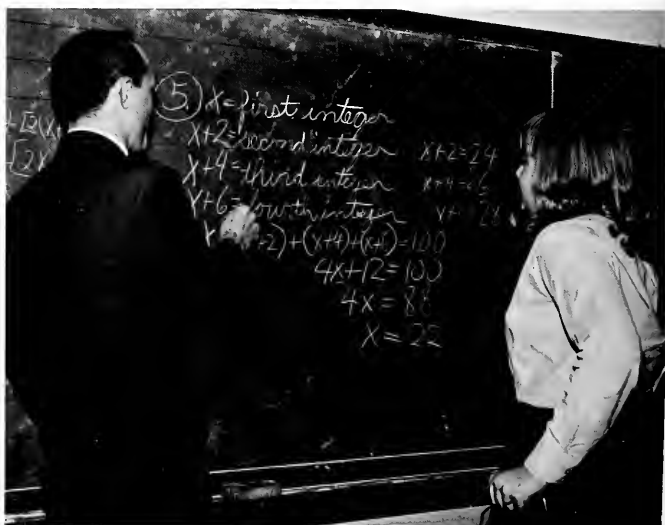 5. x = first integer
x+2 = second integer x+2=24
x+4 = third integer x+4=26
x+6 = fourth integer 28
x +2)+(x+4)+(x+6)=100
4x+12=100
4x=88
x=22
+[2(x
[2x